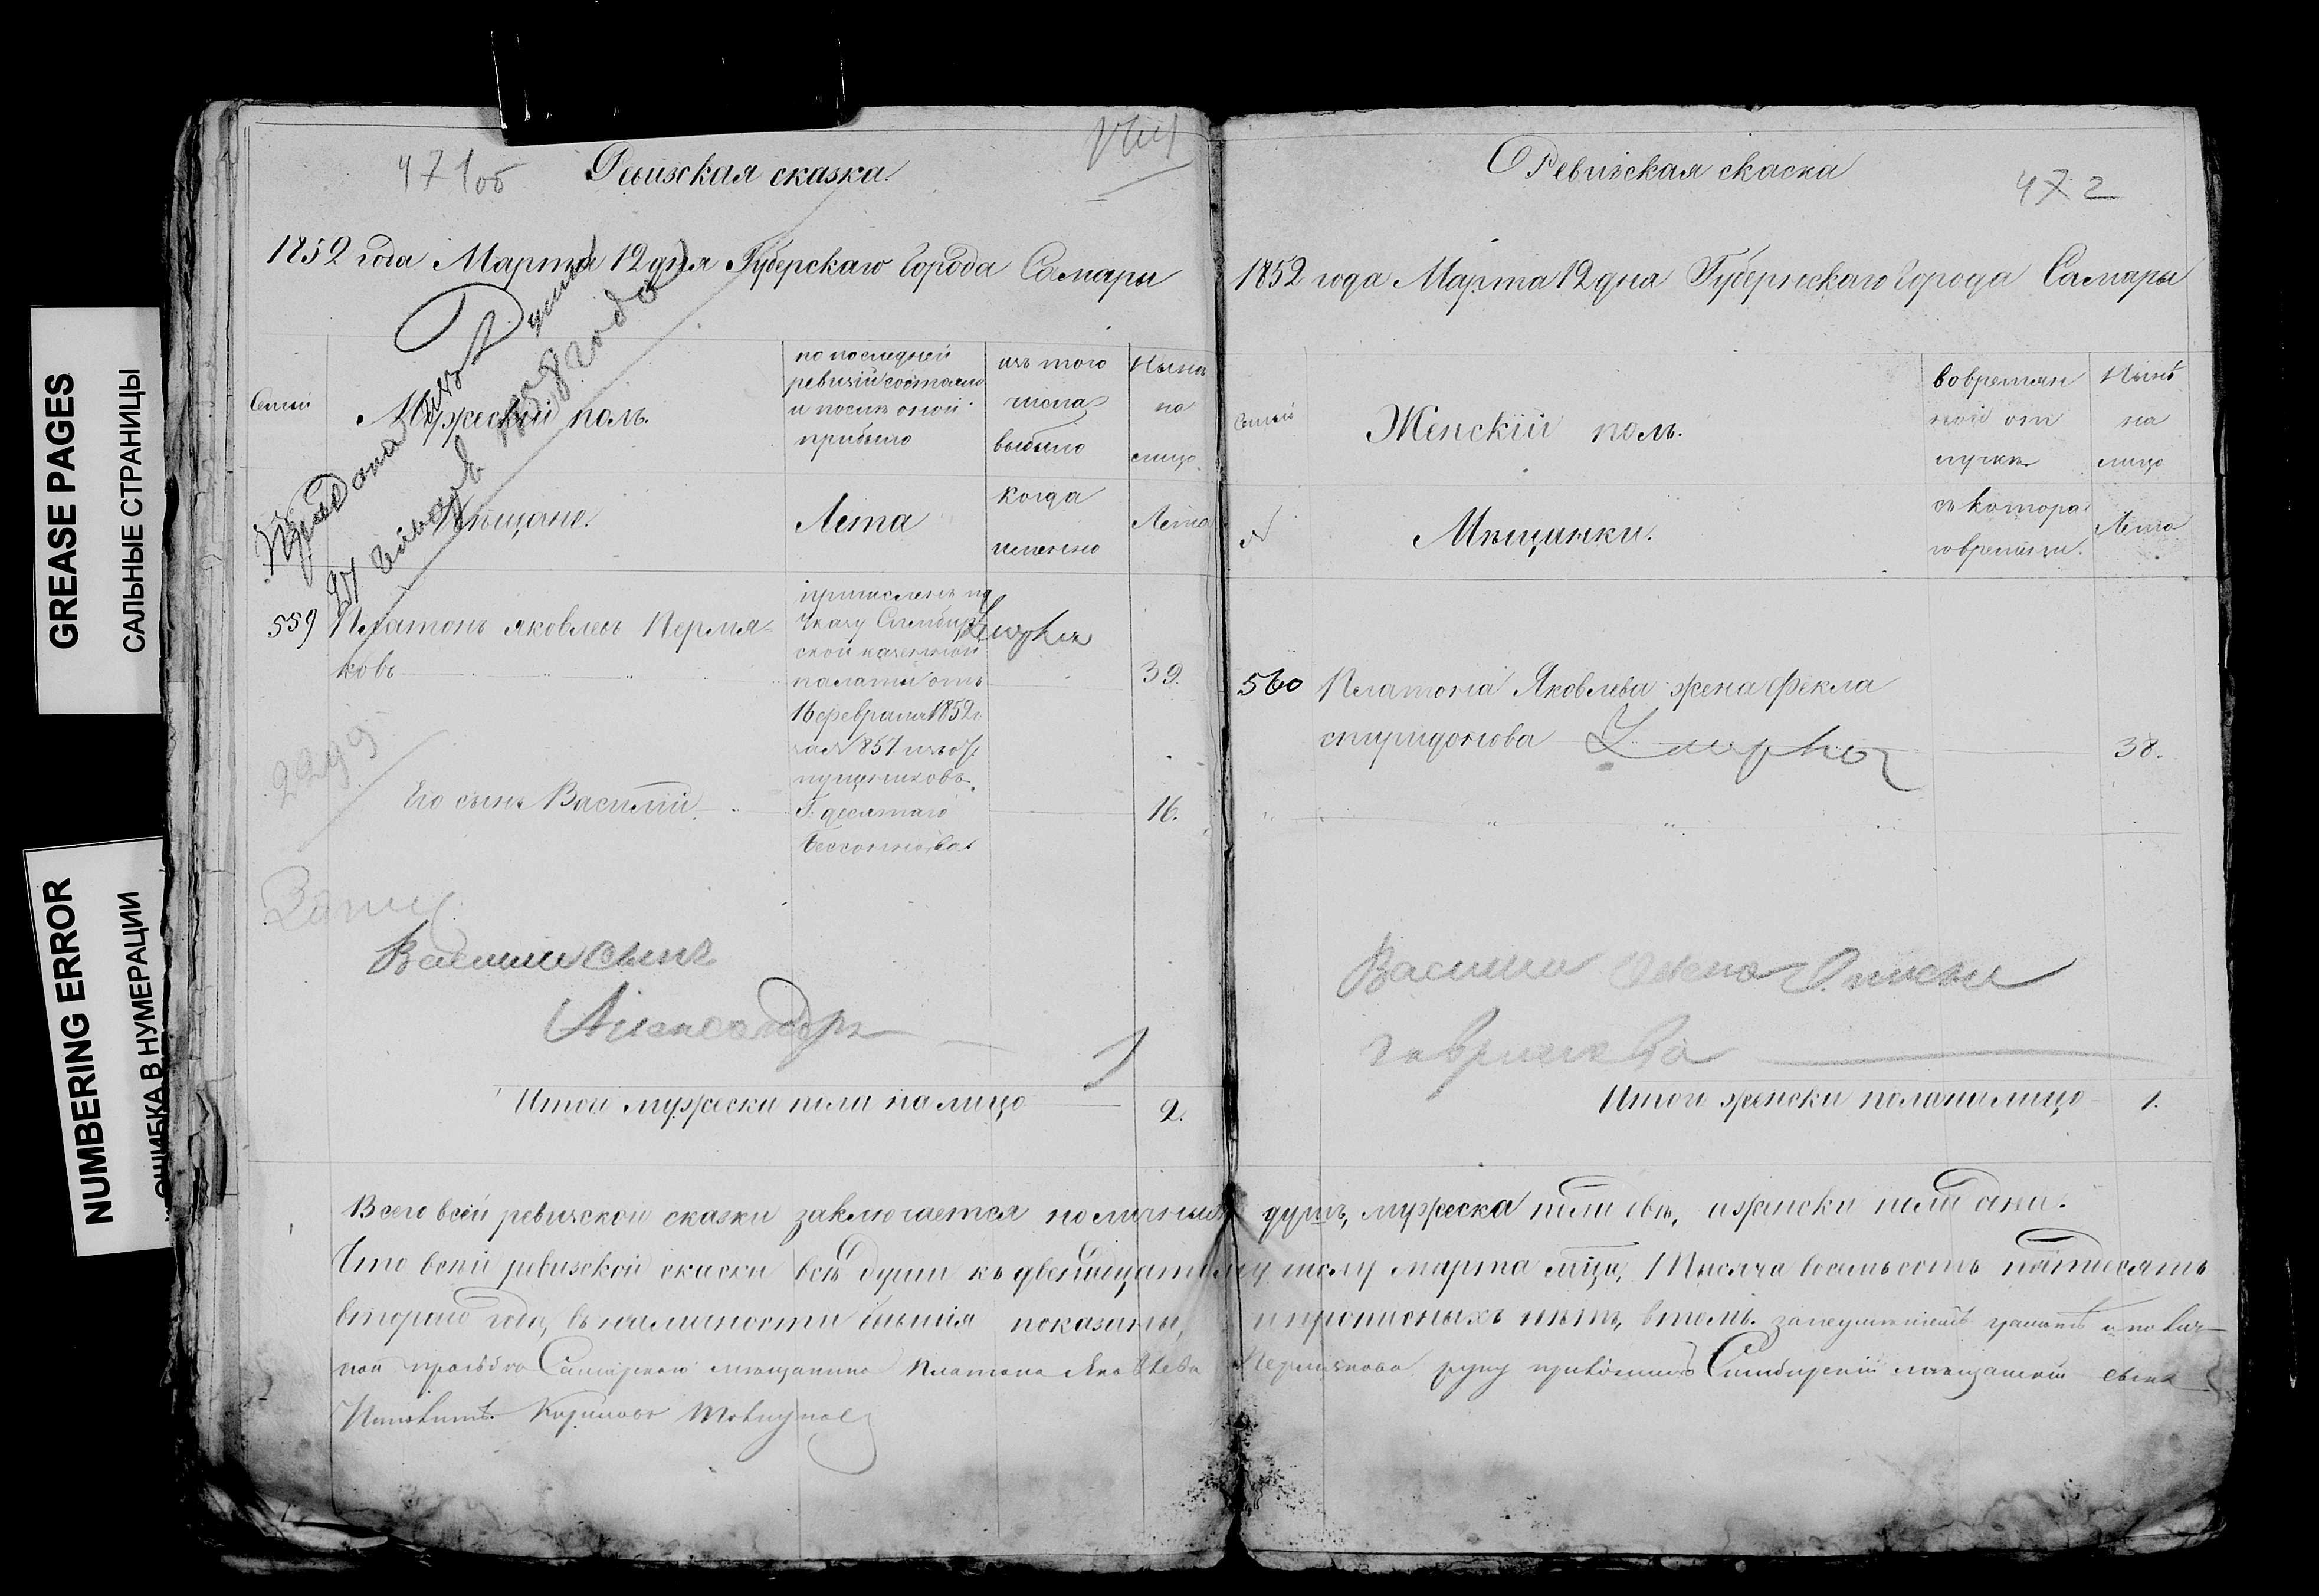 GREASE PAGES
САЛЬНЫЕ СТРАНИЦЫ
NUMBERING ERROR
ОШИБКА В НУМЕРАЦИИ
471об
Ревизская сказка
1852 года Марта 12 дня Губерскаго Города Самары
Семьи
Мужеский полъ.
по последней
ревизiи состояло
и после оной
прибыло
изъ того
числа
выбыло
Ныне
на
лицо
Мещане.
Лета
когда
именно
Лета
1858 года
559 Платонъ яковлевъ Пермя-
ковъ 39.
причисленъ по
Указу Симбир
ской казенной
палаты отъ
16 февраля 1852 г
за № 851 изъ от
пущенниковъ
Г. десятаго
2299
Его сынъ Василiй 16.
Василии сынъ
Александръ
Итого мужеска пола на лицо 2.
Ревизская скаска
472
1852 года Марта 12 дня Губернскаго Города Самары
Семьи
Женскiй полъ.
во времян
ной от
лучке
Нынѣ
на
лицо
№
Мѣщанки.
съ котора
го времени.
Лета
560 Платона Яковлева жена Фекла
спиридонова 38.
Василия жена
гаврилова
Итого женска пола на лицо 1.
Всего всей ревизской сказки заключается наличныхъ душъ, мужеска пола две, а женска пола одна.
Что всей ревизской скаски все души къ двенадцатому числу марта мца, Тысяча восемьсотъ пятидесять
втораго года, въ наличности бывшiя показаны, и прописныхъ нетъ, в томъ. за неумениемъ грамоте и по лич-
ной прозьбе Самарскаго мещанина Платона Яковлева Пермякова руку приложилъ Симбирскiй мещанской сынъ